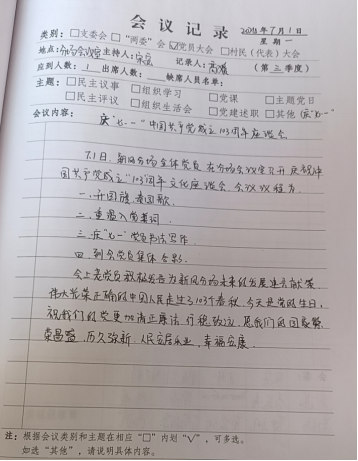 会议记录
2024年7月1日
星期一
类别：□支委会 □“两委”会 ☑党员大会 □村民（代表）大会
地点：分场会议室 主持人： 记录人： （第三季度）
应到人数： 出席人数： 缺席人员名单：
主题：□民主议事 □组织学习 □党课 □主题党日
□民主评议 □组织生活会 □党建述职 □其他 庆“七一”
会议内容：
庆“七.一”中国共产党成立103周年座谈会
7.1日，新风分场全体党员在分场会议室召开庆祝中
国共产党成立“103周年文化座谈会，会议议程为
一.升国旗，奏国歌.
二.重温入党誓词.
三.庆“七一”党员书法写作
四.到会党员集体合影.
会上老党员积极发言为新风分场未来的发展建言献策
伟大光荣正确的中国人民走过了103个春秋，今天是党的生日，
祝我们的党更加清正廉洁，行稳致远，愿我们的国家繁
荣昌盛，历久弥新，人民安居乐业，幸福安康.
注：根据会议类别和主题在相应“□”内划“√”，可多选。
如选“其他”，请说明具体内容。